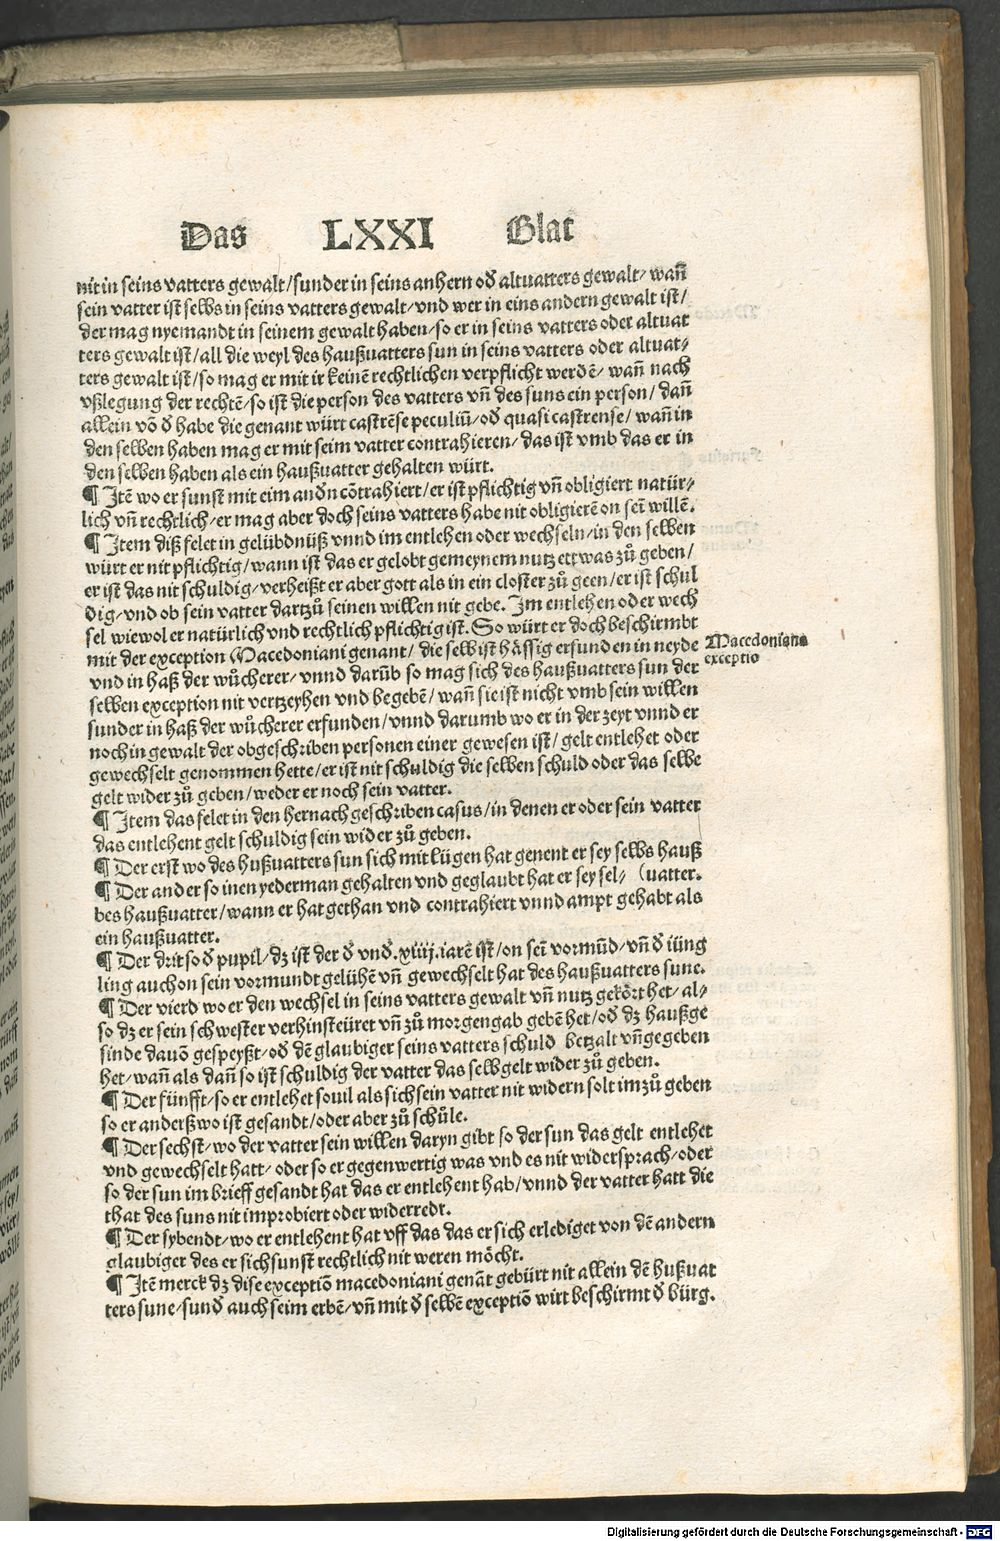 Das LXXI Blat
nit in seins vatters gewalt/sunder in seins anhern od̕ altuatters gewalt/ wañ
sein vatter ist selbs in seins vatters gewalt/vnd wer in eins andern gewalt ist/
der mag nyemandt in seinem gewalt haben/so er in seins vatters oder altuat
ters gewalt ist/all die weyl des haußuatters sun in seins vatters oder altuat⸗
ters gewalt ist/so mag er mit ir keinē rechtlichen verpflicht werdē/ wañ nach
vßlegung der rechtē/so ist die person des vatters vñ des suns ein person/ dañ
allein vō d̕ habe die genant würt castrēse peculiū/od̕ quasi castrense/ wañ in
den selben haben mag er mit seim vatter contrahieren/ das ist vmb das er in
den selben haben als ein haußuatter gehalten würt.
¶ Itē wo er sunst mit eim and̕n cōtrahiert/er ist pflichtig vñ obligiert natür⸗
lich vñ rechtlich/er mag aber doch seins vatters habe nit obligierē on sei᷑ willē.
¶ Item diß felet in gelübdnüß vnnd im entlehen oder wechseln/in den selben
würt er nit pflichtig/wann ist das er gelobt gemeynem nutz ettwas zů geben/
er ist das nit schuldig/verheißt er aber gott als in ein closter zů geen/er ist schul
dig/vnd ob sein vatter dartzů seinen willen nit gebe. Im entlehen oder wech
sel wiewol er natürlich vnd rechtlich pflichtig ist. So würt er doch beschirmbt
mit der exception Macedoniani genant/ die selb ist hässig erfunden in neyde
vnd in haß der wůcherer/vnnd darūb so mag sich des haußuatters sun der
selben exception nit vertzeyhen vnd begebē/ wañ sie ist nicht vmb sein willen
sunder in haß der wůcherer erfunden/vnnd darumb wo er in der zeyt vnnd er
noch in gewalt der obgeschriben personen einer gewesen ist/ gelt entlehet oder
gewechselt genommen hette/er ist nit schuldig die selben schuld oder das selbe
gelt wider zů geben/weder er noch sein vatter.
¶ Item das felet in den hernach geschriben casus/in denen er oder sein vatter
das entlehent gelt schuldig sein wider zů geben.
¶ Der erst wo des hußuatters sun sich mit lügen hat genent er sey selbs hauß
¶ Der ander so inen yederman gehalten vnd geglaubt hat er sey sel⸗ (uatter.
bes haußuatter/wann er hat gethan vnd contrahiert vnnd ampt gehabt als
ein haußuatter.
¶ Der drit so d̕ pupil/dz ist der d̕ vnd̕ .xiiij. iarē ist/on sei᷑ vormūd/vñ d̕ iüng
ling auch on sein vormundt gelühē vñ gewechselt hat des haußuatters sune.
¶ Der vierd wo er den wechsel in seins vatters gewalt vñ nutz gekört het/al⸗
so dz er sein schwester verhinsteüret vñ zů morgengab gebē het/od̕ dz haußge
sinde dauō gespeyßt/od̕ dē glaubiger seins vatters schuld betzalt vñ gegeben
het/wañ als dañ so ist schuldig der vatter das selb gelt wider zů geben.
¶ Der fünfft/so er entlehet souil als sich sein vatter nit widern solt im zů geben
so er anderßwo ist gesandt/oder aber zů schůle.
¶ Der sechst/wo der vatter sein willen daryn gibt so der sun das gelt entlehet
vnd gewechselt hatt/ oder so er gegenwertig was vnd es nit widersprach/oder
so der sun im brieff gesandt hat das er entlehent hab/vnnd der vatter hatt die
that des suns nit improbiert oder widerredt.
¶ Der sybendt/wo er entlehent hat vff das das er sich erlediget von dē andern
glaubiger des er sich sunst rechtlich nit weren möcht.
¶ Itē merck dz dise exceptiō macedoniani genāt gebürt nit allein dē hußuat
ters sune/sund̕ auch seim erbē/vñ mit d̕ selbē exceptiō wirt beschirmt d̕ bürg.
Macedoniana
exceptio
Digitalisierung gefördert durch die Deutsche Forschungsgemeinschaft - DFG